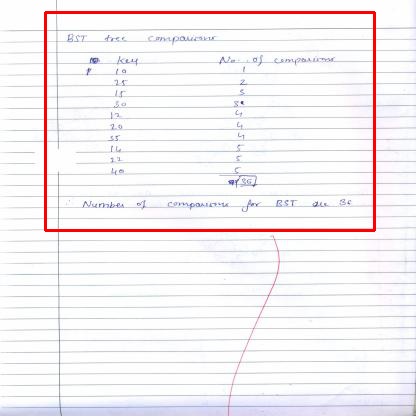 BST tree comparisons
Key No. of comparisons
10 1
25 2
15 3
30 3
12 4
20 4
35 4
14 5
22 5
40 5
36
∴ Number of comparisons for BST are 36